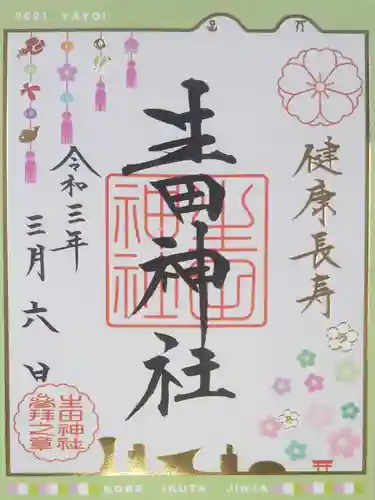 2021 YAYOI
健康長寿
生田神社
生田神社
令和三年
三月六日
生田神社
参拝之章
KOBE IKUTA JINJA